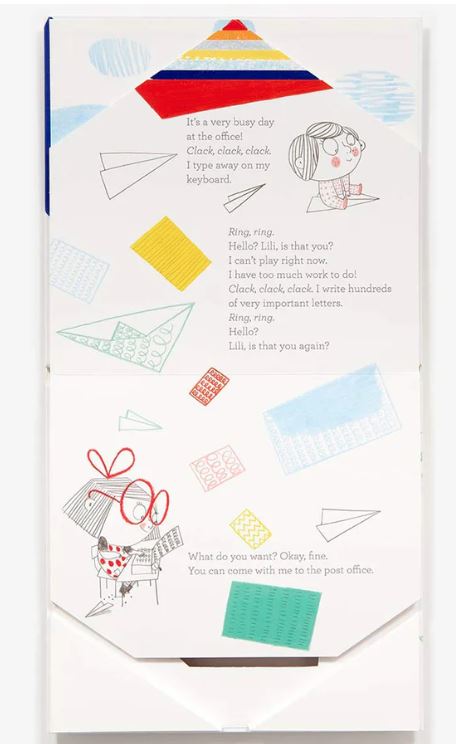 It's a very busy day
at the office!
Clack, clack, clack.
I type away on my
keyboard.
Ring, ring.
Hello? Lili, is that you?
I can't play right now.
I have too much work to do!
Clack, clack, clack. I write hundreds
of very important letters.
Ring, ring.
Hello?
Lili, is that you again?
What do you want? Okay, fine.
You can come with me to the post office.